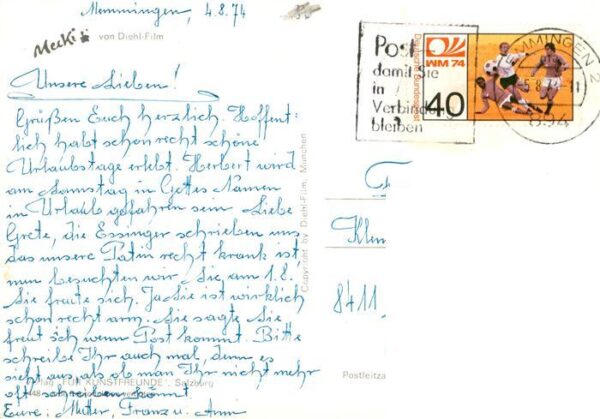 Memmingen, 4.8.74
Mecki von Diehl-Film
Unsere Lieben!
Grüßen Euch herzlich. Hoffent-
lich habt schon recht schöne
Urlaubstage erlebt. Herbert wird
am Samstag in Gottes Namen
in Urlaub gefahren sein. Liebe
Grete, die Essinger schrieben uns
das unsere Patin recht krank ist,
nun besuchten wir Sie, am 1.8.
Sie freute sich. Ja Sie ist wirklich
schon recht arm. Sie sagte Sie
freut sch wenn Post kommt. Bitte
schreibe Ihr auch mal, denn es
sieht aus, als ob man Ihr nicht mehr
oft schreiben könnt
Eure: Mutter, Franz u. Ann
"FÜR KUNSTFREUNDE", Salzburg
Copyright by Diehl-Film, München
Post
damit Sie
in
Verbindung
bleiben
Deutsche Bundespost
WM 74
40
MMINGEN 2
5.8.74-11
Klem
8411
Postleitza